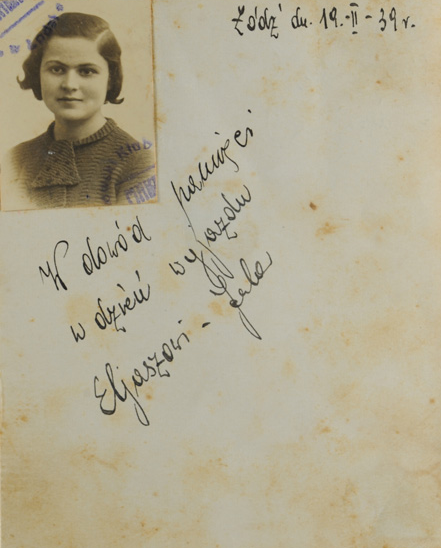 Łódź dn. 19.-II-39 r.
W dowód pamięci
w dzień wyjazdu
Eljaszowi - Gala